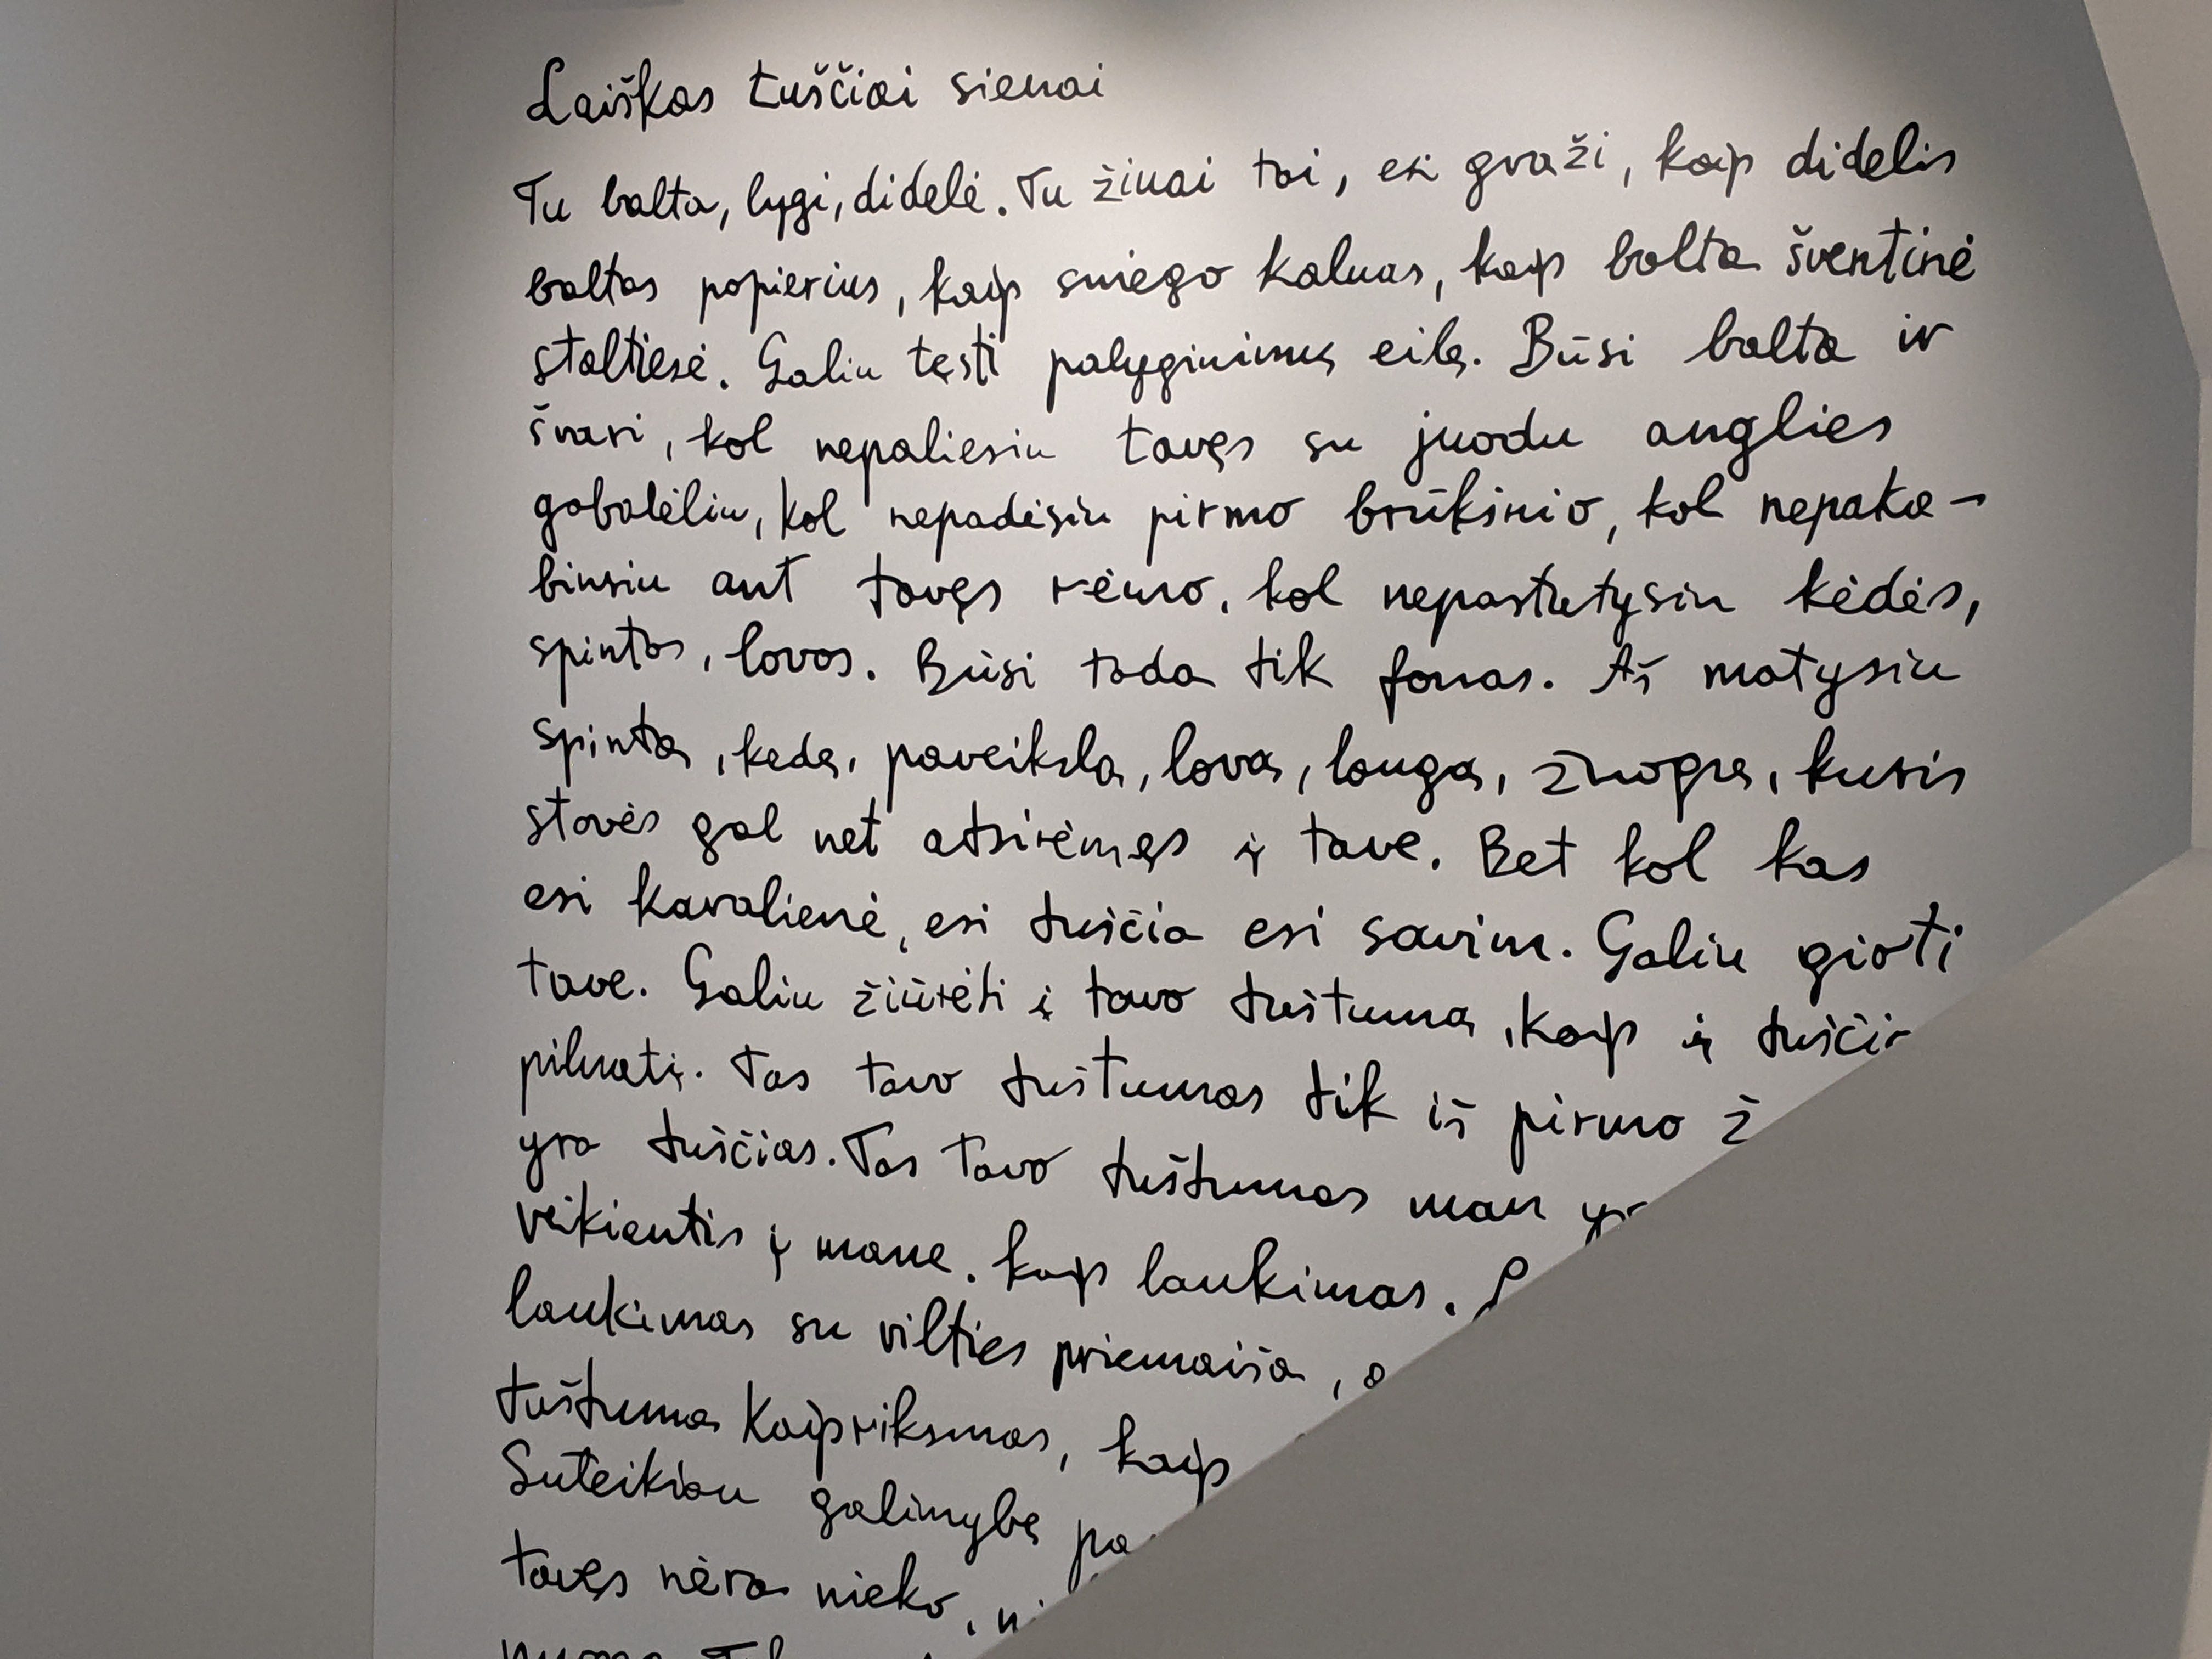 Laiškas tuščiai sienai
Tu balta, lygi, didelė. Tu žinai tai, esi graži, kaip didelis
baltas popierius, kaip sniego kalnas, kaip balta šventinė
staltiesė. Galiu tęsti palyginimų eilę. Būsi balta ir
švari, kol nepaliesiu tavęs su juodu anglies
gabalėliu, kol nepadėsiu pirmo brūkšnio, kol nepaka-
binsiu ant tavęs rėmo, kol nepastatysiu kėdės,
spintos, lovos. Būsi tada tik fonas. Aš matysiu
spintą, kėdę, paveikslą, lovą, langą, žmogų, kuris
stovės gal net atsirėmęs į tave. Bet kol kas
esi karalienė, esi tuščia esi savim. Galiu girti
tave. Galiu žiūrėti į tavo tuštumą, kaip į
pilnatį. Tas tavo tuštumas tik iš pirmo
yra tuščias. Tas tavo tuštumas man
veikiantis į mane, kaip laukimas.
laukimas su vilties priemaiša,
tuštuma kaip riksmas, kaip
Suteikiau galimybę
tavęs nėra nieko,